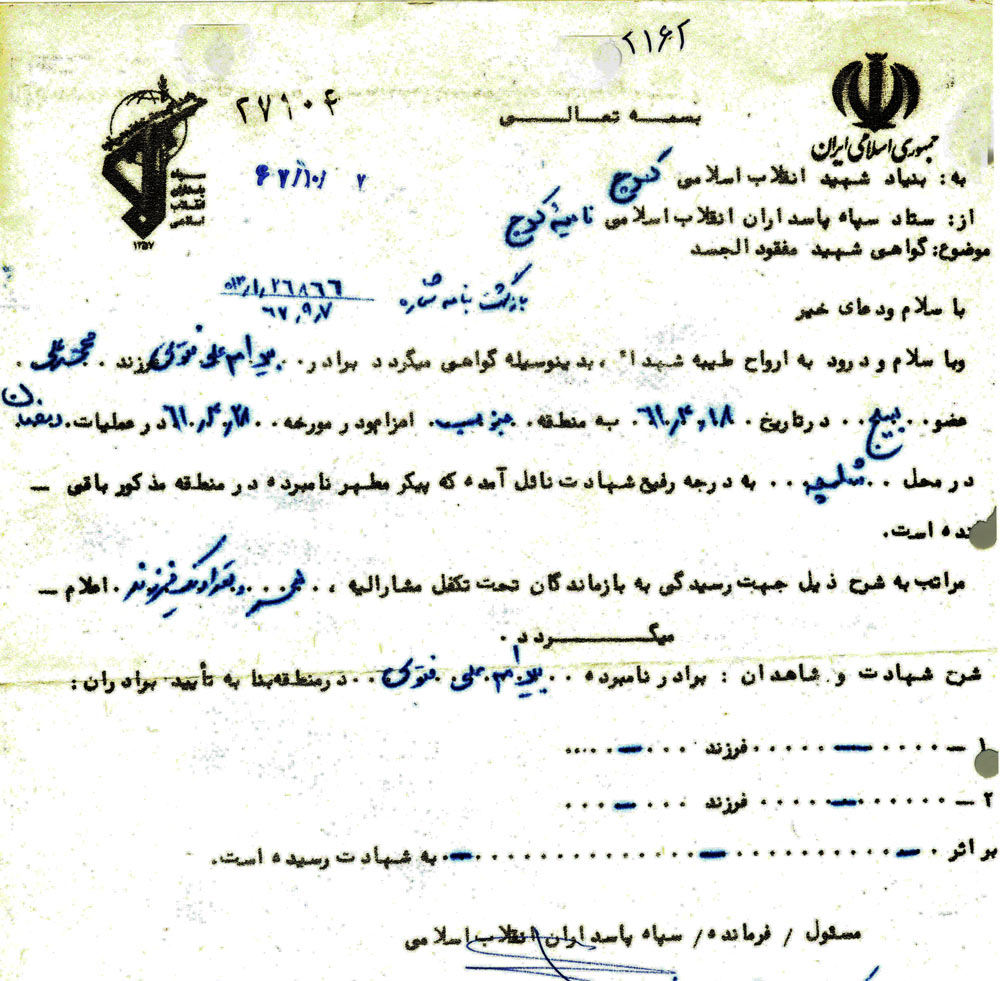 ۲۱۶۲
۲۷۱۰۴
بسمه تعالی
جمهوری اسلامی ایران
سپاه پاسداران انقلاب اسلامی
۱۳۵۷
۶۷/۱۰/۲
به: بنیاد شهید انقلاب اسلامی کرج
از: ستاد سپاه پاسداران انقلاب اسلامی ناحیه کرج
موضوع: گواهی شهید مفقود الجسد
با سلام ودعای خیر بازگشت بنامه شماره
۶۷٫۹٫۷
وبا سلام و درود به ارواح طیبه شهدا، بدینوسیله گواهی میگردد برادر فرزند
عضو بسیج درتاریخ ۶۱٫۴٫۱۸ به منطقه جنوب اعزام ودر مورخه ۶۱٫۴٫۲۸ در عملیات رمضان
در محل شلمچه به درجه رفیع شهادت نائل آمده که پیکر مطهر نامبرده در منطقه مذکور باقی —
نده است.
مراتب به شرح ذیل جهت رسیدگی به بازماندگان تحت تکفل مشارالیه ، فرزند اعلام —
میگردد .
شرح شهادت و شاهدان : برادر نامبرده درمنطقه بنا به تأیید برادران:
۱ — ..... — ..... فرزند .... — ....
۲ — ..... — ..... فرزند .... — ....
بر اثر . — .......... — .......... — . به شهادت رسیده است.
مسئول / فرمانده / سپاه پاسداران انقلاب اسلامی